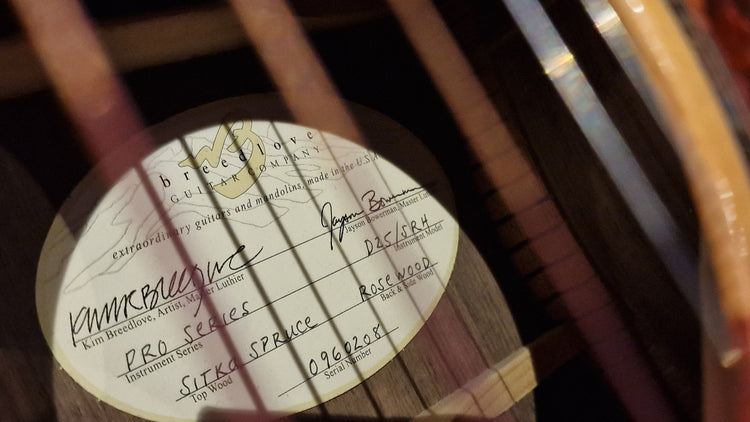 breedlove
GUITAR COMPANY
extraordinary guitars and mandolins, made in the U.S.A.
Kim Breedlove
Kim Breedlove, Artist, Master Luthier
Jayson Bowerman
Jayson Bowerman, Master Luthier
PRO SERIES
Instrument Series
D25/SRH
Instrument Model
SITKA SPRUCE
Top Wood
ROSEWOOD
Back & Side Wood
0960208
Serial Number